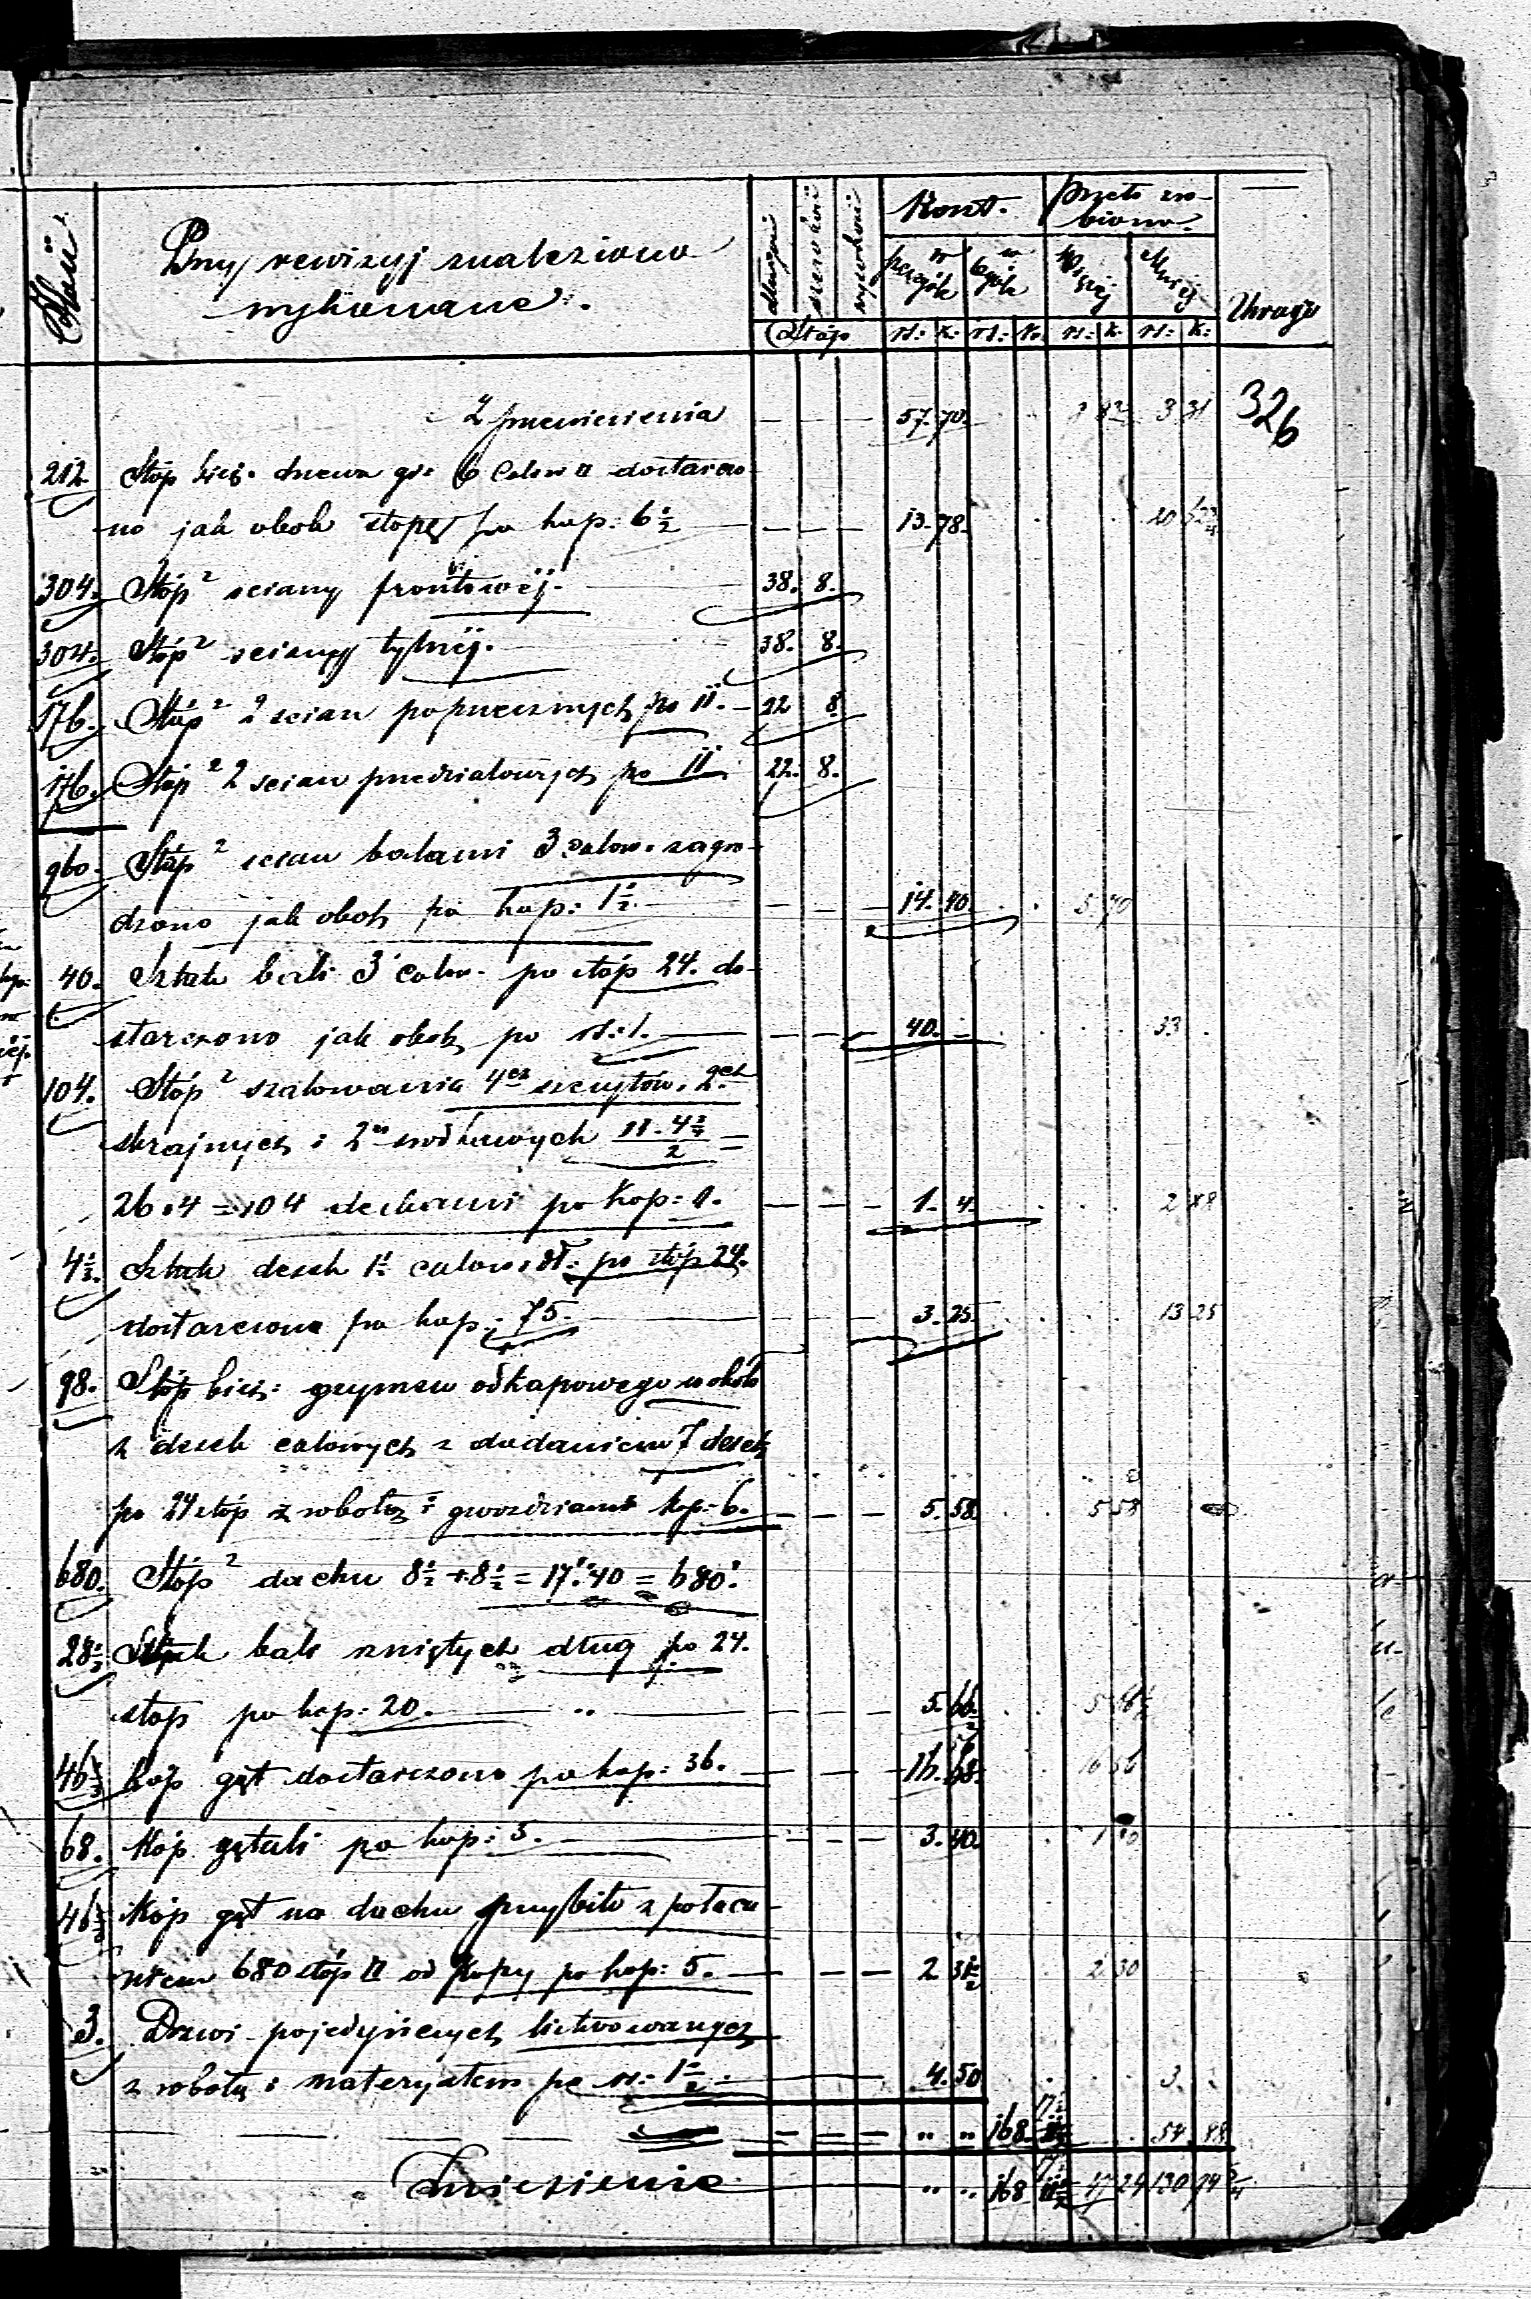 Ilość
Przy rewizyj znaleziono
wykonane.
długość
szerokość
wysokość
Stóp
Koszt.
w szczególe
w ogóle
przeto zro-
biono.
Więcej
Mniej
rs: k: rs: k: rs: k: rs: k:
Uwagi
326
Z przeniesienia 57. 70. 3 31
212 Stóp bież. drzewa gr: 6 Calow □ dostarczo-
no jak obok stopę po kop: 6½ 13. 78.
304. Stóp² sciany frontowej. 38. 8.
304. Stóp² sciany tylnej. 38. 8.
176. Stóp² 2 scian poprzecznych po 11. 22 8.
176. Stóp² 2 scian przedziałowych po 11 22. 8.
960. Stóp² scian balami 3 calow. zagro-
dzono jak obok po kop: 1½. 14. 40. 5 70
40. Sztuk bali 3 calow. po stóp 24. do-
starczono jak obok po rs: 1. 40. 33
104. Stóp² szalowania 4ch szczytów, 2ch
skrajnych i 2ch srodkowych 11. 4¾ / 2 =
26 . 4 = 104 deskami po kop: 1. 1. 4. 2 88
4⅓. Sztuk desek 1½ calow: dł: po stóp 24.
dostarczono po kop: 75. 3. 25. 13 25
98. Stóp bież: gzymsu odkapowego w okolo
z desek calowych z dodaniem 7 desek
po 24 stóp z robotą i gwoździami kop: 6. 5. 58. 5 58
680. Stóp² dachu 8½ + 8½ = 17.40 = 680.
28⅓ Sztuk łat rzniętych dług po 24.
stop po kop: 20. 5. 66.
46 kóp gąt dostarczono po kop: 36. 16.
68. kóp gątali po kop: 5. 3. 40.
46 Kóp gąt na dachu przybito z połaca-
niem 680 stóp □ od kopy po kop: 5. 2 2 30
3. Drzwi pojedyńczych listwowanych
z robotą i materyałem po rs: 1½. 4. 50 3.
168. 54. 48
Zniesienie 168 17 24 130 74¾